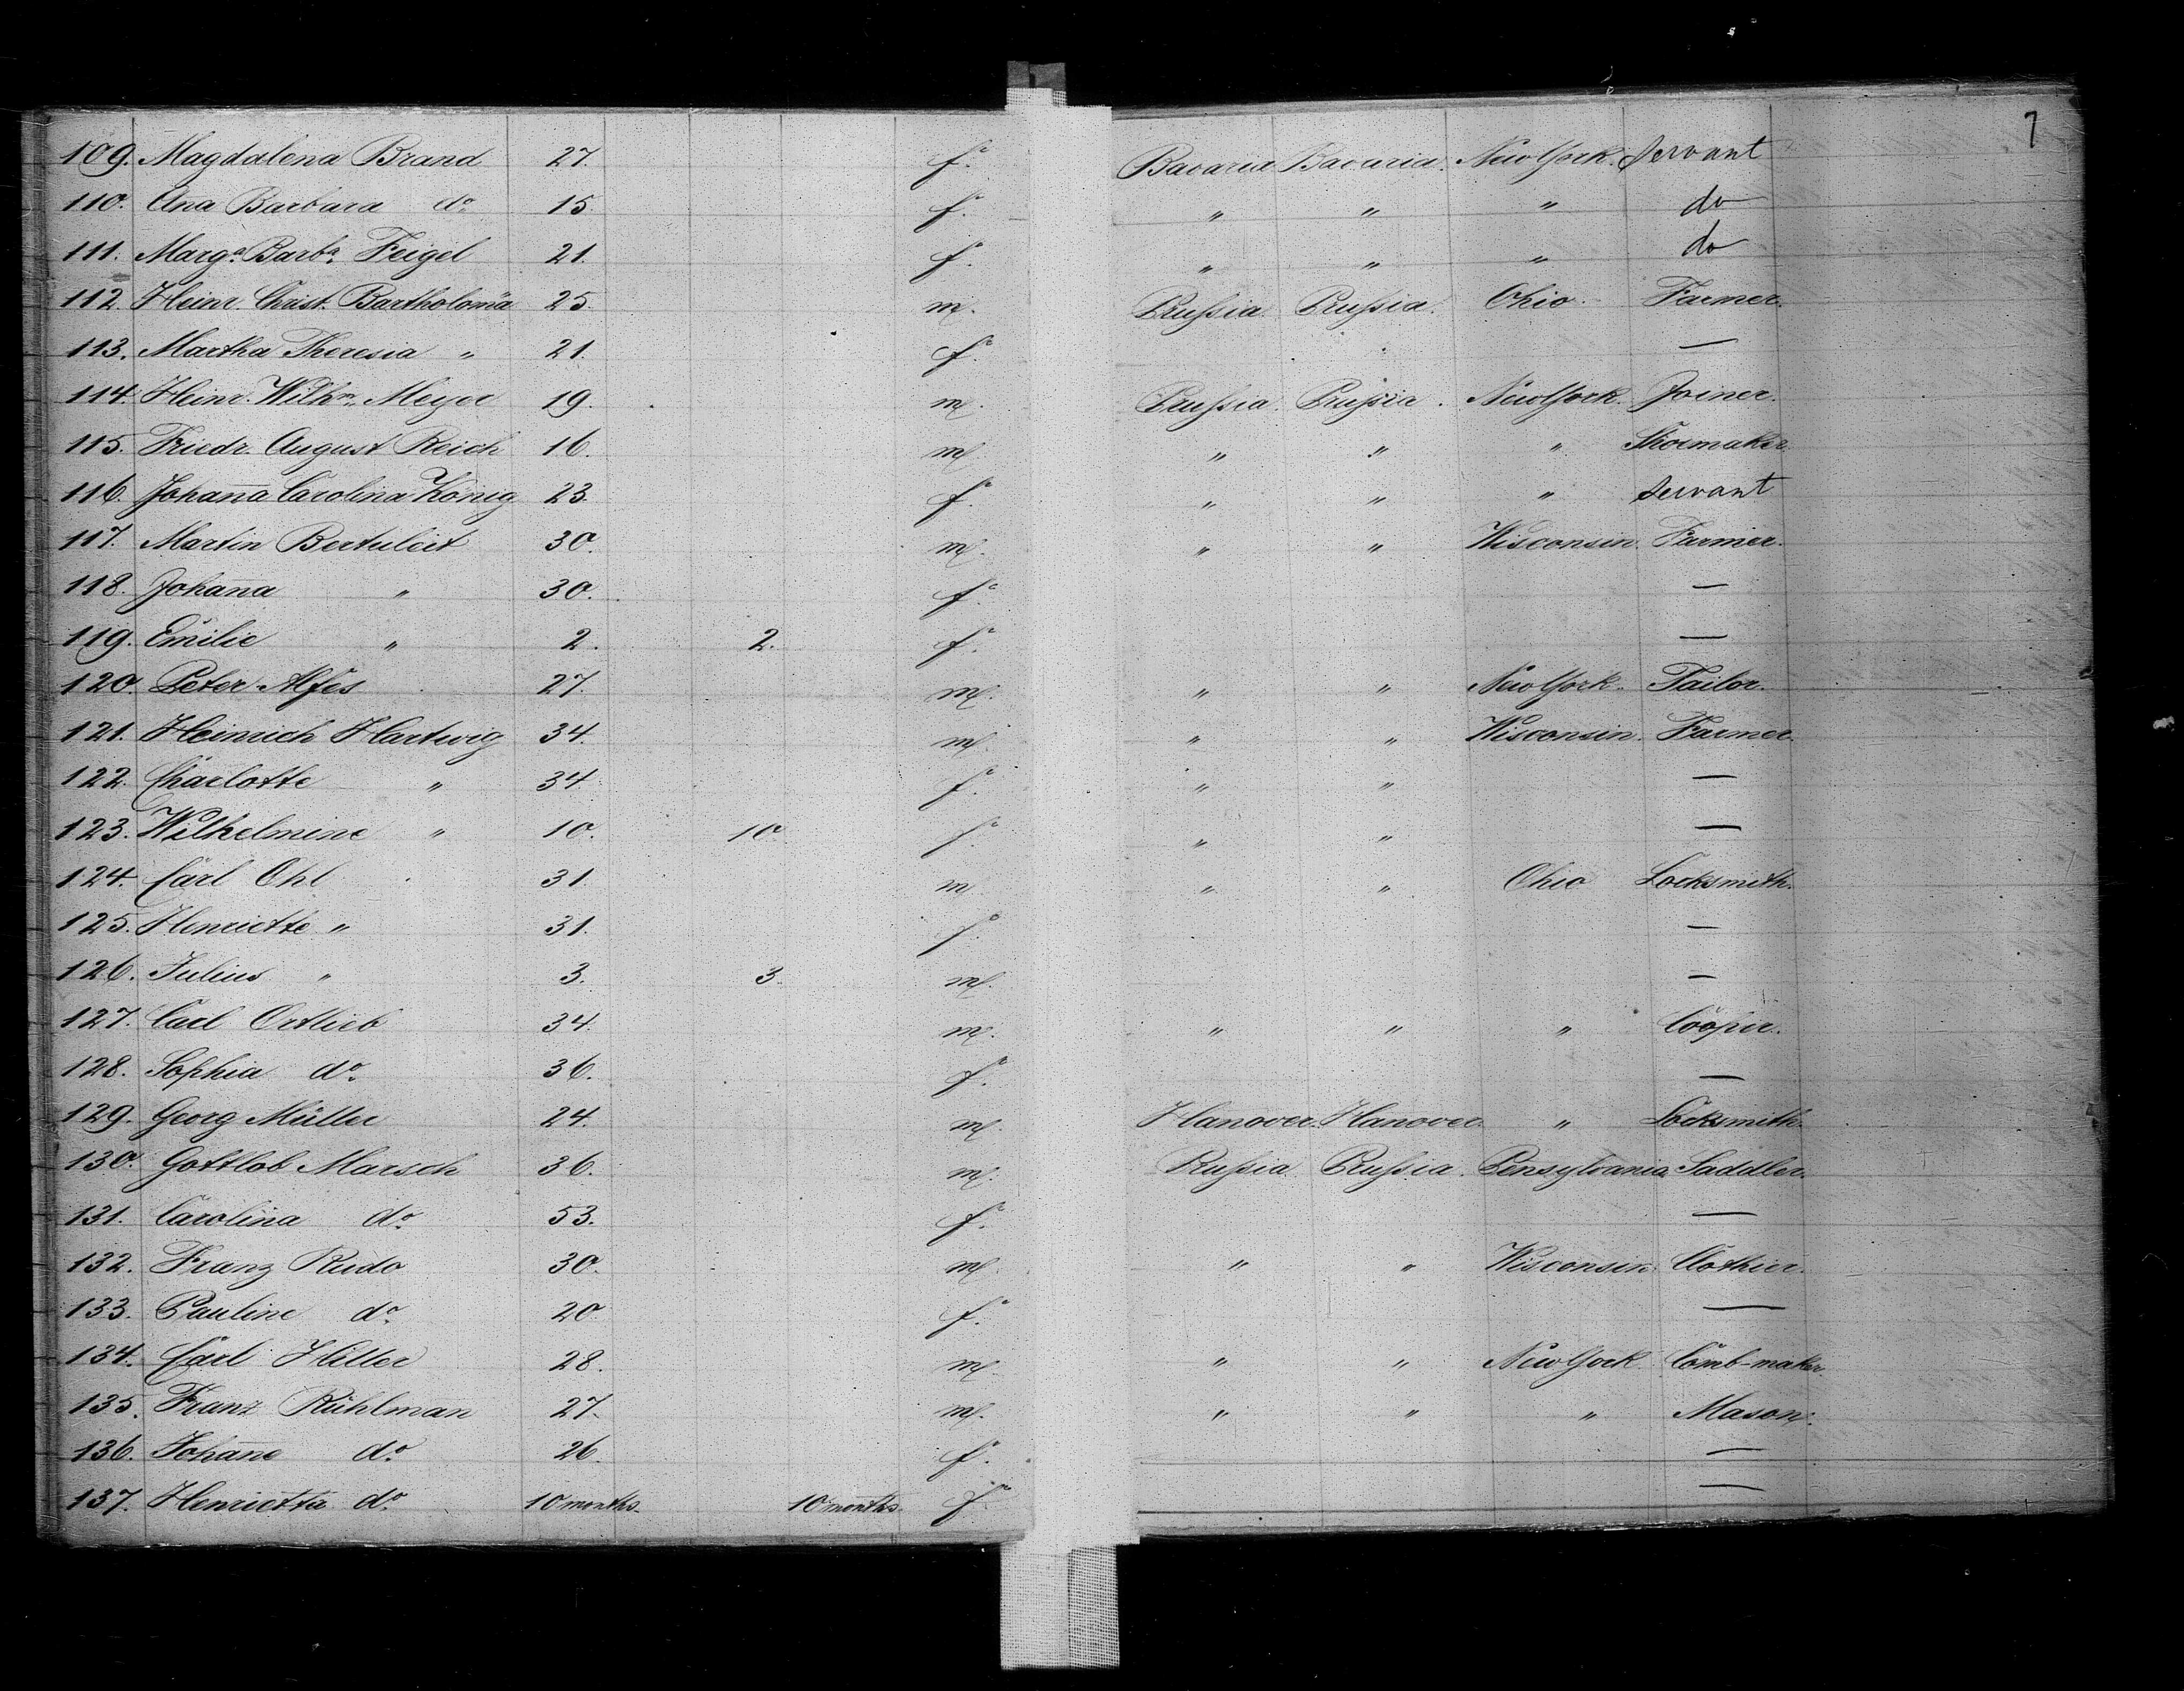 7
109. Magdalena Brand 27. f. Bavaria Bavaria. New York. Servant
110. Ana Barbara do. 15. f. " " " do
111. Marga. Barba. Feigel 21. f. " " " do
112. Heinr. Christ. Bartholomä 25. m. Prussia Prussia. Ohio. Farmer.
113. Martha Theresia " 21. f. —
114. Heinr. Wilhm. Meyer 19. m. Prussia. Prussia. New York. Joiner.
115. Friedr. August Reich 16. m. " " " Shoemaker.
116. Johan̄a Carolina König 23. f. " " " Servant
117. Martin Bertuleit 30. m. " " Wisconsin. Farmer.
118. Johan̄a " 30. f. —
119. Emilie " 2. 2. f. —
120. Peter Alfes 27. m. " " New York. Tailor.
121. Heinrich Hartwig 34. m. " " Wisconsin. Farmer.
122. Charlotte " 34 f. " " —
123. Wilhelmine " 10. 10. f. " " —
124. Carl Ohl 31. m. " " Ohio Locksmith.
125. Henriette " 31. f. —
126. Julius " 3. 3. m. —
127. Carl Ortlieb 34. m. " " " Cooper.
128. Sophia do. 36. f. —
129. Georg Müller 24. m. Hanover. Hanover. " Locksmith.
130. Gottlob Marsch 36. m. Prussia Prussia. Pensylvania Saddler.
131. Carolina do. 53. f. —
132. Franz Rudo 30. m. " " Wisconsin Clothier.
133. Pauline do. 20 f. —
134. Carl Hiller 28. m. " " New York. Comb-maker.
135. Franz Rühlman̄ 27. m. " " " Mason.
136. Johan̄e do. 26. f. —
137. Henrietta do. 10 months. 10 months. f. —